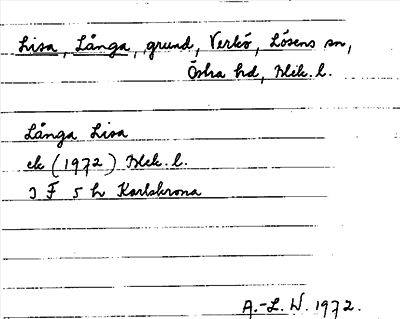 Lisa, Långa, grund, Verkö, Lösens sn,
Östra hd, Blek. l.
Långa Lisa
ek (1972) Blek. l.
3 F 5 h Karlskrona
A.-L. W. 1972.